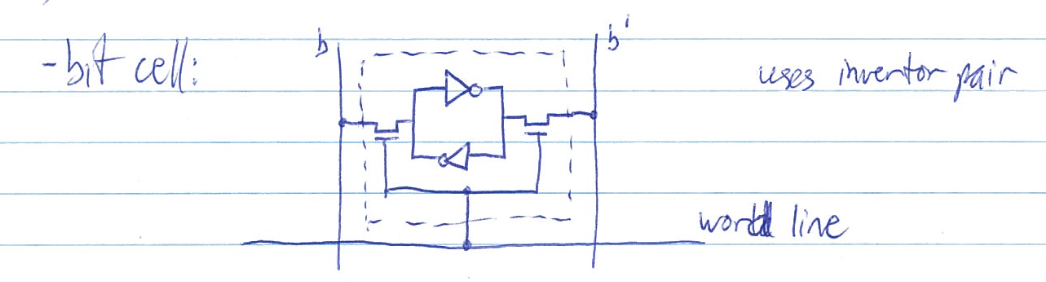 b b'
-bit cell: uses invertor pair
word line